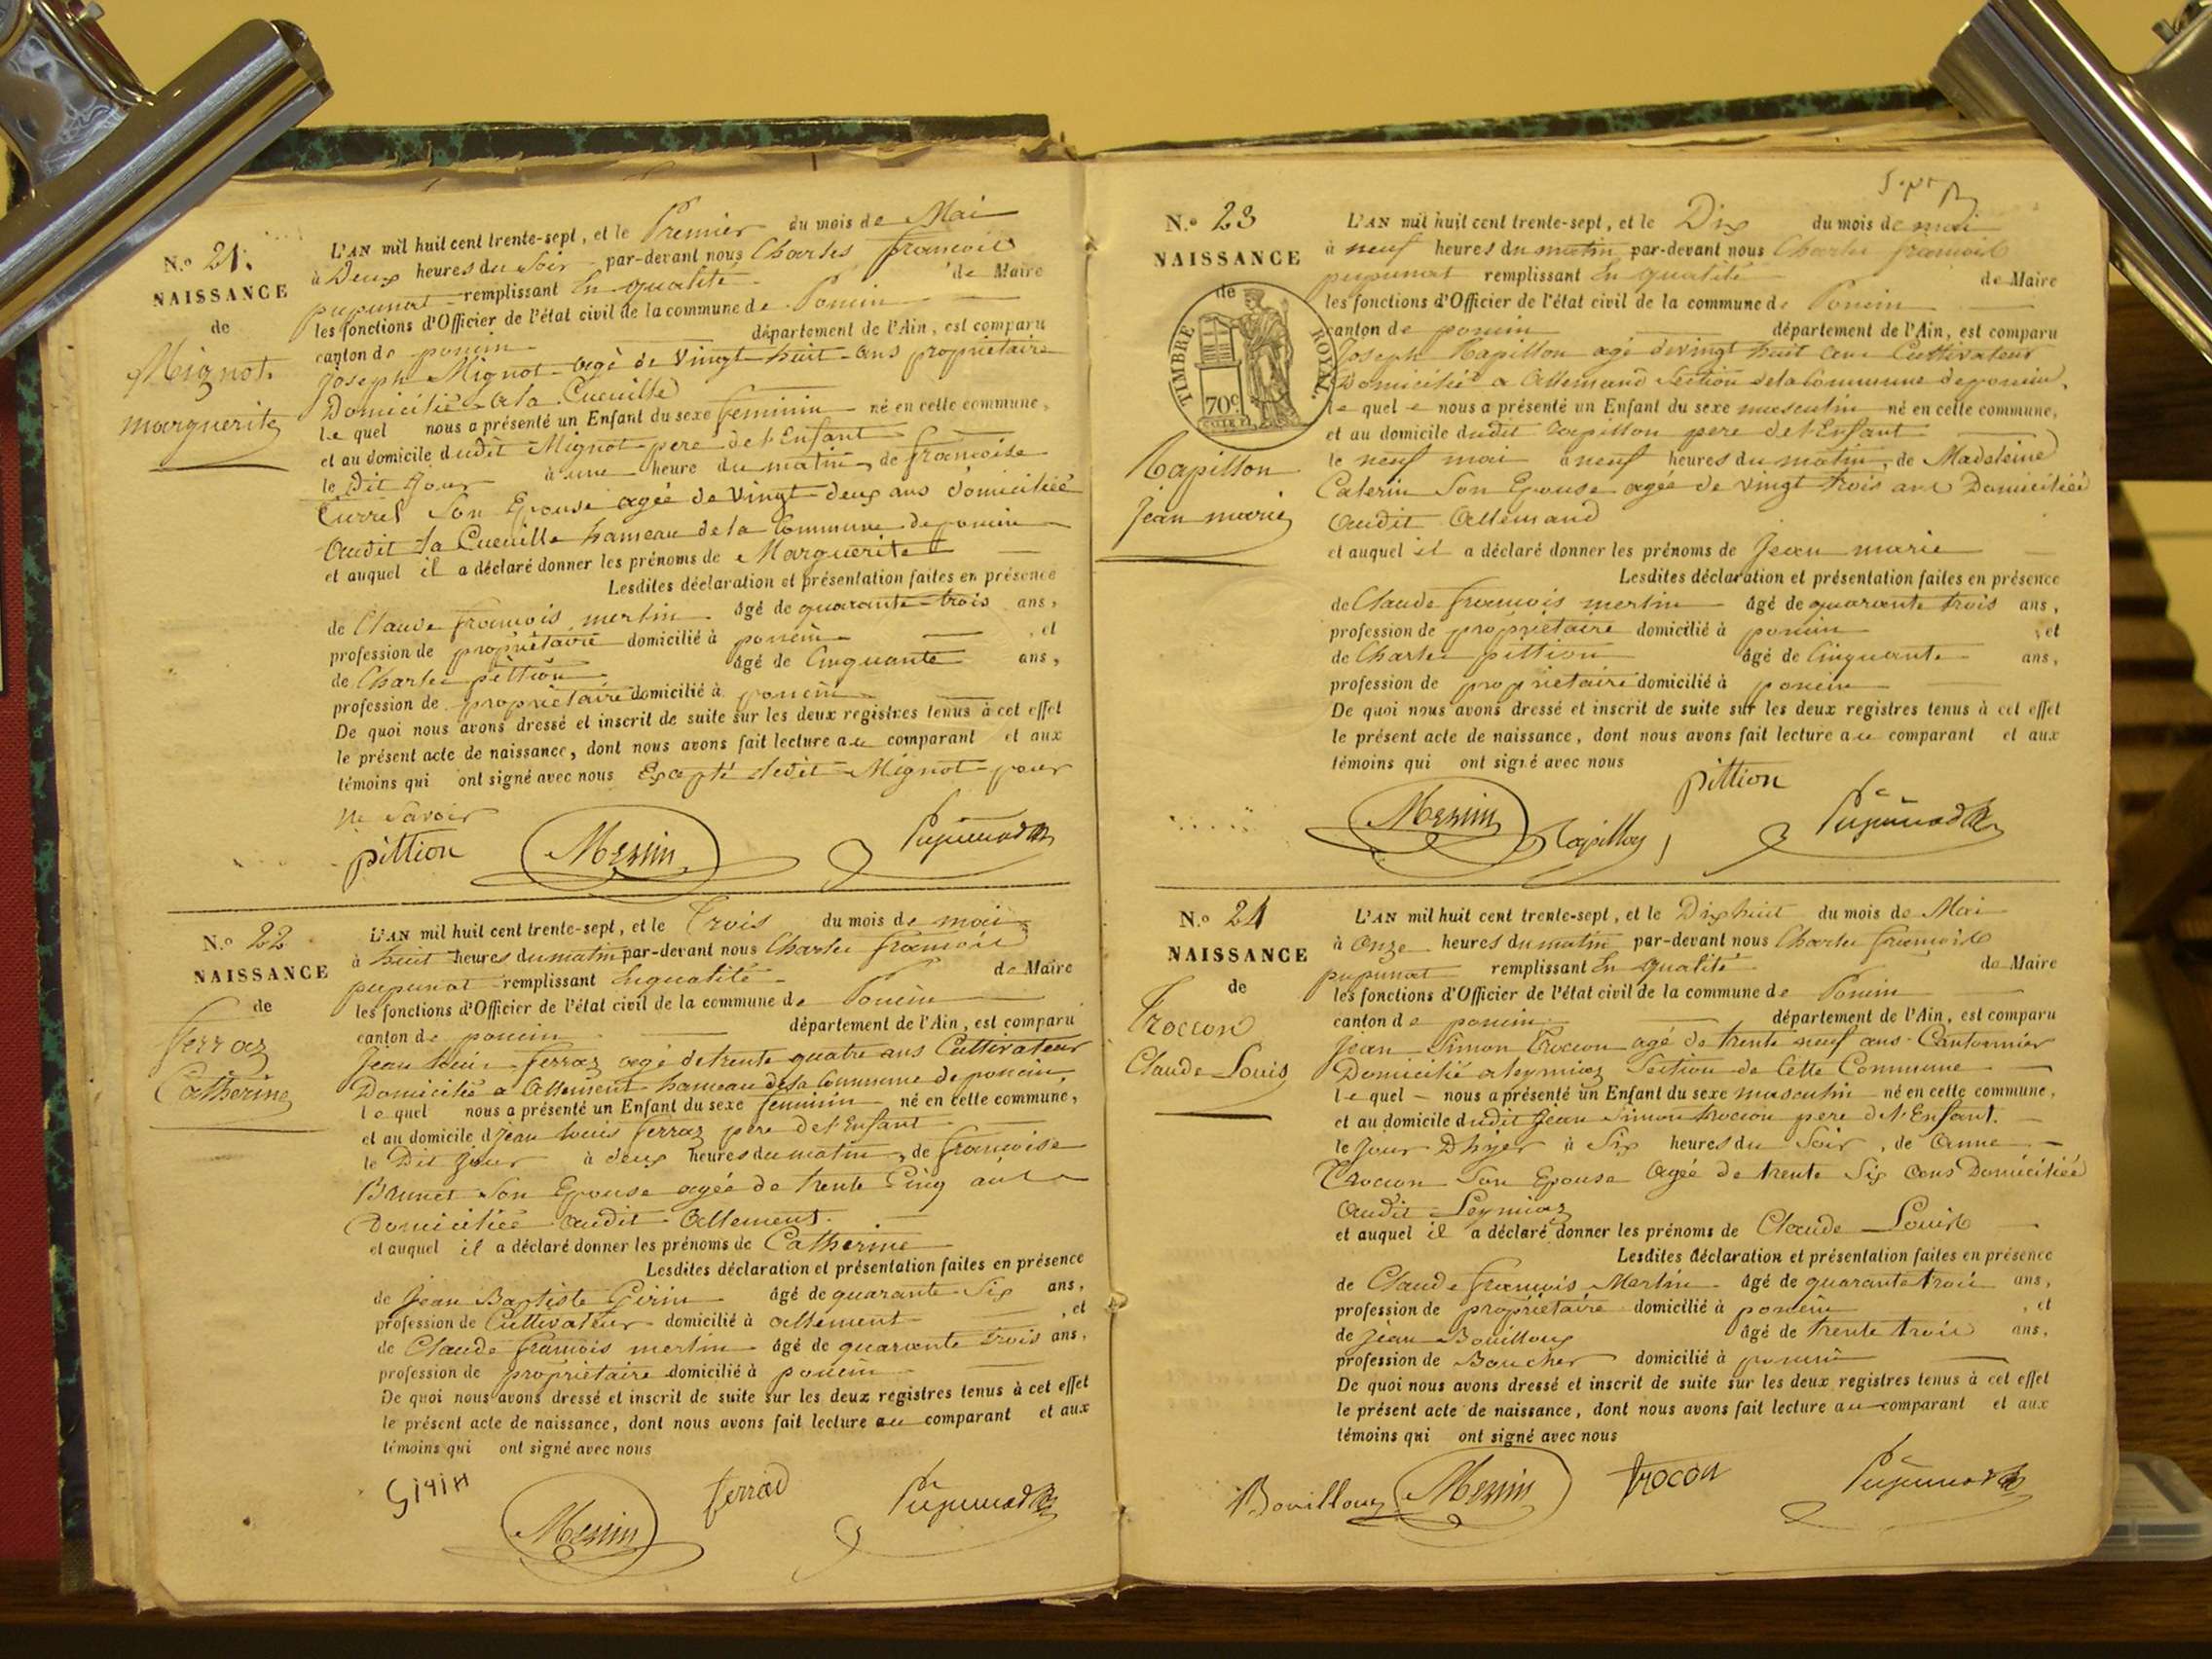 N.º 21.
NAISSANCE
de
Mignot
marguerite
L'AN mil huit cent trente-sept, et le Premier du mois de Mai
à Deux heures du Soir par-devant nous Charles francois
pupunat remplissant En qualité de Maire
les fonctions d'Officier de l'état civil de la commune de Poncin
canton de poncin département de l'Ain, est comparu
Joseph Mignot agé de vingt huit ans propriétaire
Domicilié a la Cueuille
le quel nous a présenté un Enfant du sexe feminin né en cette commune,
et au domicile dudit Mignot pere de l'Enfant
le Dit Jour à une heure du matin, de francoise
Currel Son Epouse agée de vingt deux ans domiciliée
audit la Cueuille hameau de la Commune de poncin
et auquel il a déclaré donner les prénoms de Marguerite
Lesdites déclaration et présentation faites en présence
de Claude francois merlin âgé de quarante trois ans,
profession de propriétaire domicilié à poncin, et
de Charles pittion âgé de Cinquante ans,
profession de propriétaire domicilié à poncin
De quoi nous avons dressé et inscrit de suite sur les deux registres tenus à cet effet
le présent acte de naissance, dont nous avons fait lecture au comparant et aux
témoins qui ont signé avec nous Excepté ledit Mignot pour
ne Savoir
pittion Merlin Pupunat
N.º 22
NAISSANCE
de
ferraz
Catherine
L'AN mil huit cent trente-sept, et le Trois du mois de mai
à huit heures du matin par-devant nous Charles francois
pupunat remplissant En qualité de Maire
les fonctions d'Officier de l'état civil de la commune de Poncin
canton de poncin département de l'Ain, est comparu
Jean Louis ferraz agé de trente quatre ans Cultivateur
Domicilié a Allement hameau de la Commune de poncin,
le quel nous a présenté un Enfant du sexe feminin né en cette commune,
et au domicile d jean louis ferraz pere de l'Enfant
le Dit Jour à deux heures du matin, de francoise
Brunet Son Epouse agée de trente Cinq ans
Domiciliée audit Allement.
et auquel il a déclaré donner les prénoms de Catherine
Lesdites déclaration et présentation faites en présence
de Jean Baptiste Girin âgé de quarante Six ans,
profession de Cultivateur domicilié à allement, et
de Claude francois merlin âgé de quarante trois ans,
profession de propriétaire domicilié à poncin
De quoi nous avons dressé et inscrit de suite sur les deux registres tenus à cet effet
le présent acte de naissance, dont nous avons fait lecture au comparant et aux
témoins qui ont signé avec nous
Girin Merlin ferrad Pupunat
N.º 23
NAISSANCE
de
TIMBRE ROYAL.
70c
Rapillon
Jean marie
L'AN mil huit cent trente-sept, et le Dix du mois de mai
à neuf heures du matin par-devant nous Charles francois
pupunat remplissant En qualité de Maire
les fonctions d'Officier de l'état civil de la commune de Poncin
canton de poncin département de l'Ain, est comparu
Joseph Rapillon agé de vingt huit ans Cultivateur
Domicilié a Allemand Section de la Commune de poncin,
le quel nous a présenté un Enfant du sexe masculin né en cette commune,
et au domicile dudit Rapillon pere de l'Enfant
le neuf mai à neuf heures du matin, de Madeleine
Caterin Son Epouse agée de vingt trois ans Domiciliée
audit Allemand
et auquel il a déclaré donner les prénoms de Jean marie
Lesdites déclaration et présentation faites en présence
de Claude francois merlin âgé de quarante trois ans,
profession de propriétaire domicilié à poncin, et
de Charles pittion âgé de Cinquante ans,
profession de propriétaire domicilié à poncin
De quoi nous avons dressé et inscrit de suite sur les deux registres tenus à cet effet
le présent acte de naissance, dont nous avons fait lecture au comparant et aux
témoins qui ont signé avec nous
Merlin Rapillon pittion Pupunat
N.º 24
NAISSANCE
de
Trocon
Claude Louis
L'AN mil huit cent trente-sept, et le Dix huit du mois de Mai
à Onze heures du matin par-devant nous Charles francois
pupunat remplissant En qualité de Maire
les fonctions d'Officier de l'état civil de la commune de Poncin
canton de poncin département de l'Ain, est comparu
jean Simon Trocon agé de trente neuf ans Cantonnier
Domicilié a leymiaz Section de Cette Commune
le quel nous a présenté un Enfant du sexe masculin né en cette commune,
et au domicile dudit Jean Simon trocon pere de l'Enfant.
le jour D'hyer à Six heures du Soir, de Anne
Trocon Son Epouse Agée de trente Six ans Domiciliée
audit Leymiaz
et auquel il a déclaré donner les prénoms de Claude Louis
Lesdites déclaration et présentation faites en présence
de Claude francois Merlin âgé de quarante trois ans,
profession de propriétaire domicilié à poncin, et
de jean Bouilloux âgé de trente trois ans,
profession de Boucher domicilié à poncin
De quoi nous avons dressé et inscrit de suite sur les deux registres tenus à cet effet
le présent acte de naissance, dont nous avons fait lecture au comparant et aux
témoins qui ont signé avec nous
Bouilloux Merlin trocon Pupunat